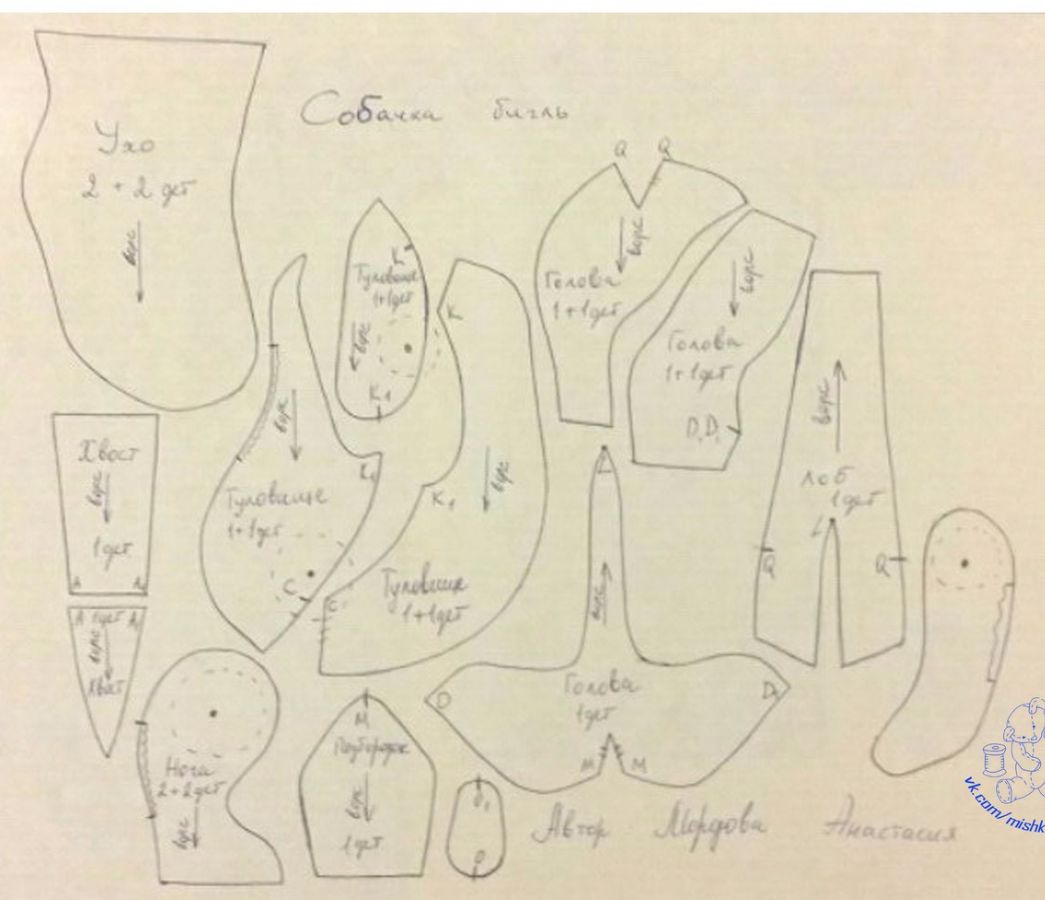 Собачка бигль
Ухо
2 + 2 дет
ворс
Q Q
ворс
Голова
1+1дет
К
Туловище
1+1дет
ворс
К1
ворс
Голова
1+1дет
D, D1
К
ворс
К1
Туловище
1+1дет
С
ворс
К1
Туловище
1+1дет
С
ворс
Лоб
1дет
L
Q Q
Хвост
ворс
1дет
А А1
А 1дет А1
ворс
Хвост
L
ворс
Голова
1дет
D D1
М М
Нога
2+2дет
ворс
М
Подбородок
ворс
1дет
О1
О
Автор Мордова Анастасия
vk.com/mishk